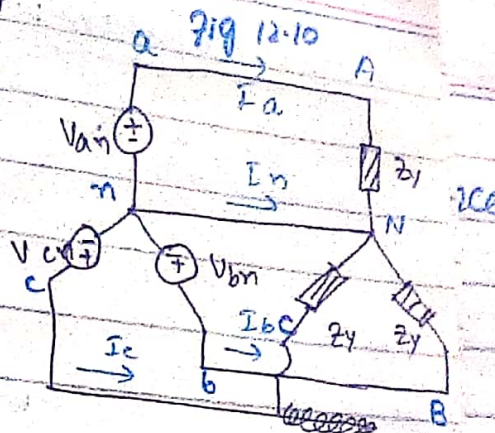 Fig 12.10
a
A
Ia
Van
±
Zy
n
In
N
Vcn
Vbn
c
Ib
C
Zy
Zy
Ic
b
B